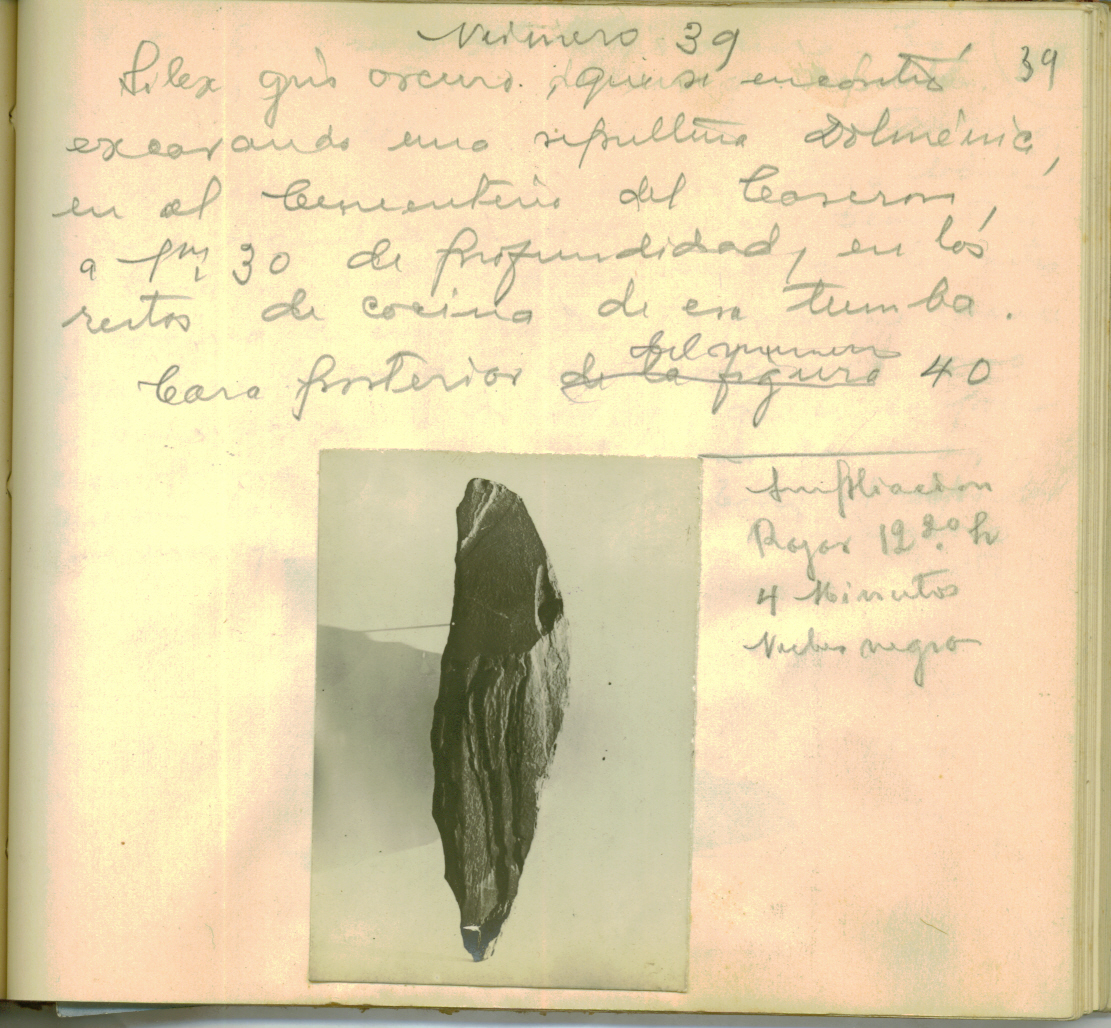 Número 39
39
Silex gris oscuro. que se encontró
excavando una sepultura Dolménica,
en el Cementerio del Caseron,
a 1m, 30 de profundidad, en los
restos de cocina de esa tumba.
del numero
Cara posterior de la figura 40
Ampliacion
Rojas 12 20 h
4 Minutos
Nubes negro